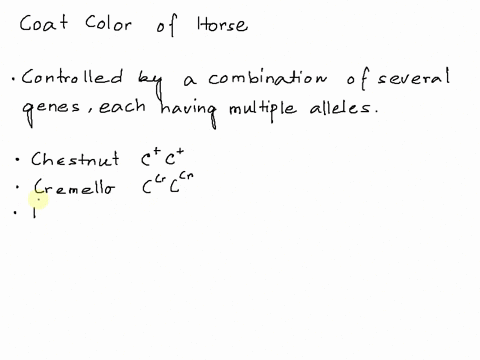 Coat Color of Horse
• Controlled by a combination of several
genes, each having multiple alleles.
• Chestnut C⁺C⁺
• Cremello C^Cr C^Cr
•